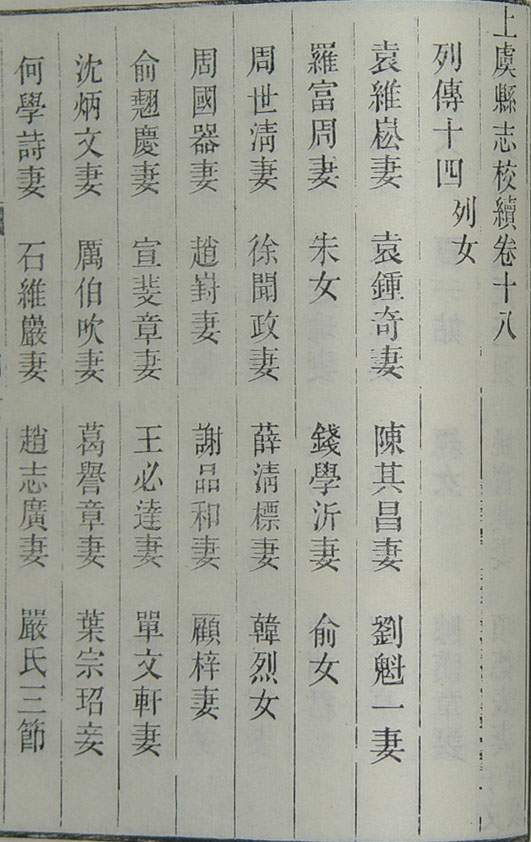 上虞縣志校續卷十八
列傳十四 列女
袁維崧妻 袁鍾奇妻 陳其昌妻 劉魁一妻
羅富周妻 朱女 錢學沂妻 俞女
周世淸妻 徐聞政妻 薛淸標妻 韓烈女
周國器妻 趙嵜妻 謝品和妻 顧梓妻
俞翹慶妻 宣斐章妻 王必達妻 單文軒妻
沈炳文妻 厲伯吹妻 葛譽章妻 葉宗玿妾
何學詩妻 石維巖妻 趙志廣妻 嚴氏三節